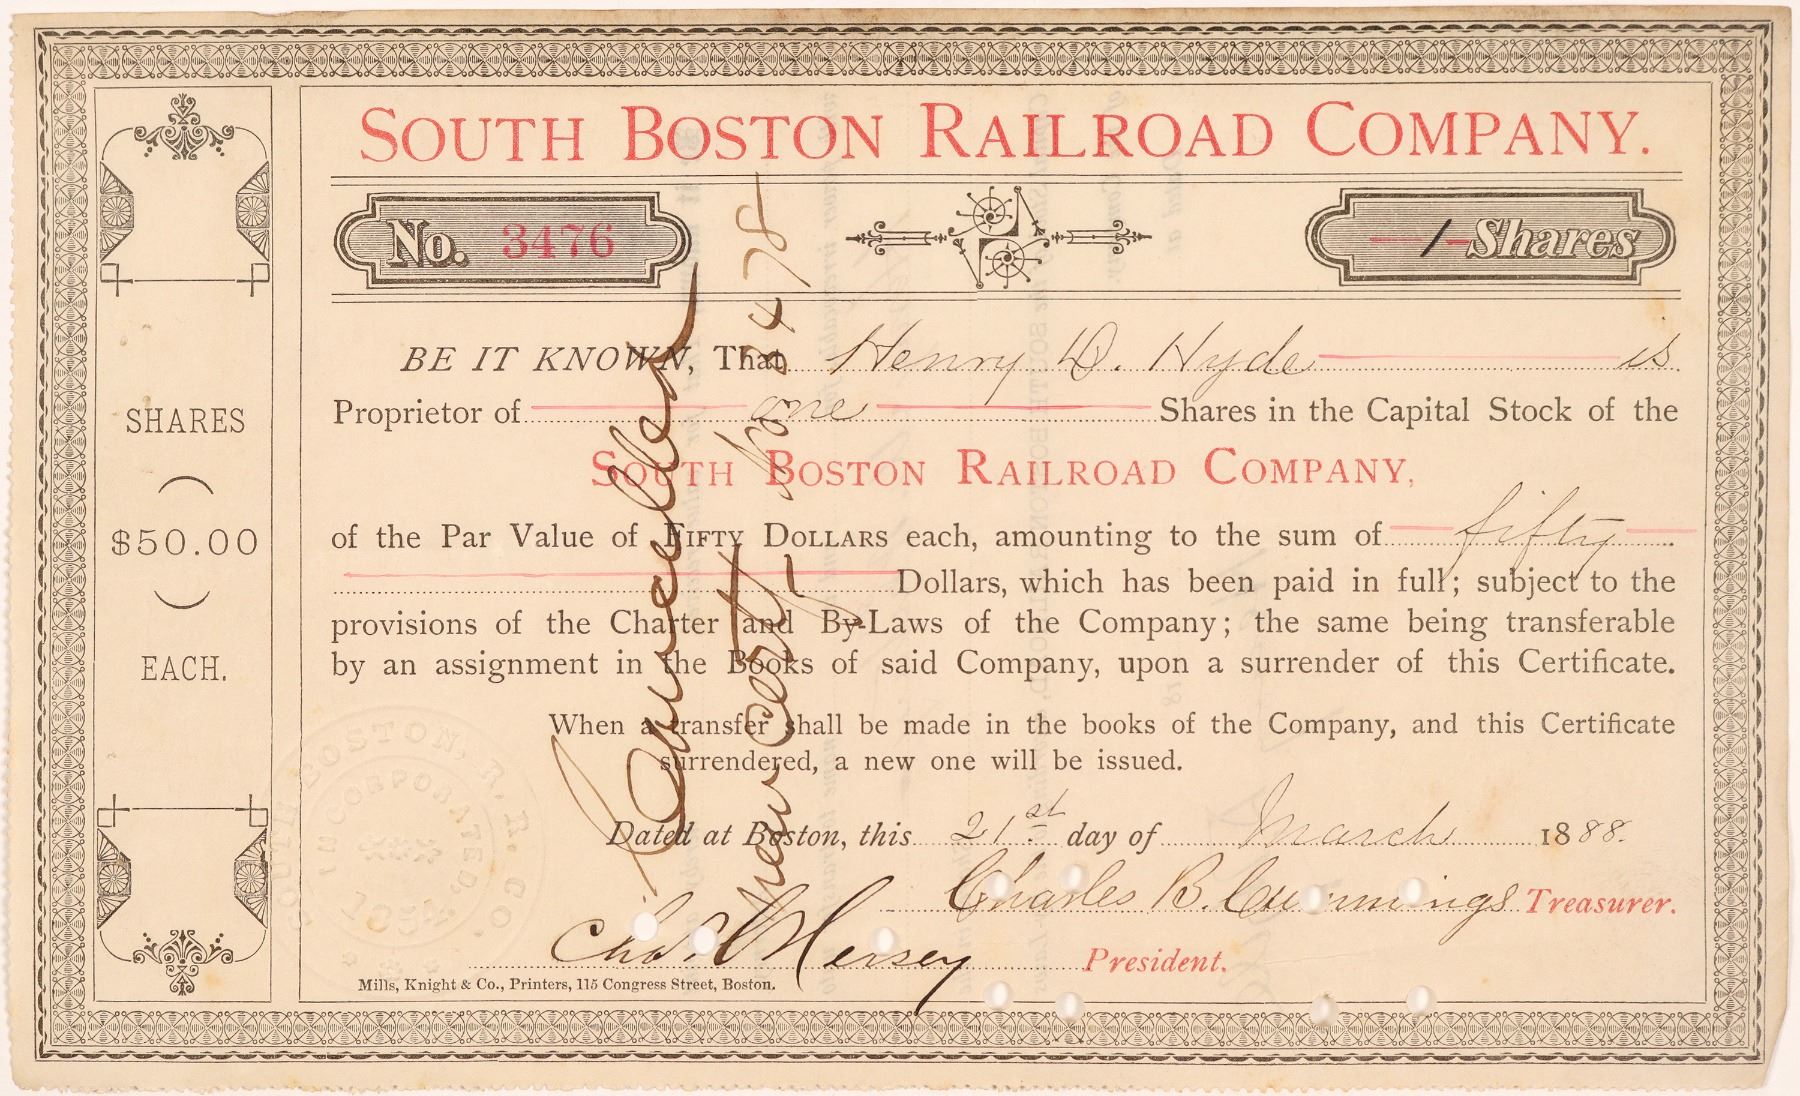 SOUTH BOSTON RAILROAD COMPANY.
No. 3476
1 Shares
BE IT KNOWN, That Henry D. Hyde is
Proprietor of one Shares in the Capital Stock of the
SOUTH BOSTON RAILROAD COMPANY,
of the Par Value of FIFTY DOLLARS each, amounting to the sum of fifty
Dollars, which has been paid in full; subject to the
provisions of the Charter and By-Laws of the Company; the same being transferable
by an assignment in the Books of said Company, upon a surrender of this Certificate.
When a transfer shall be made in the books of the Company, and this Certificate
surrendered, a new one will be issued.
Dated at Boston, this 21st day of March 1888.
Charles B. Cummings Treasurer.
Chas. Hersey President.
Mills, Knight & Co., Printers, 115 Congress Street, Boston.
SHARES
$50.00
EACH.
Cancelled
New Certf. No 3478
SOUTH BOSTON, R.R. CO.
INCORPORATED,
1854.